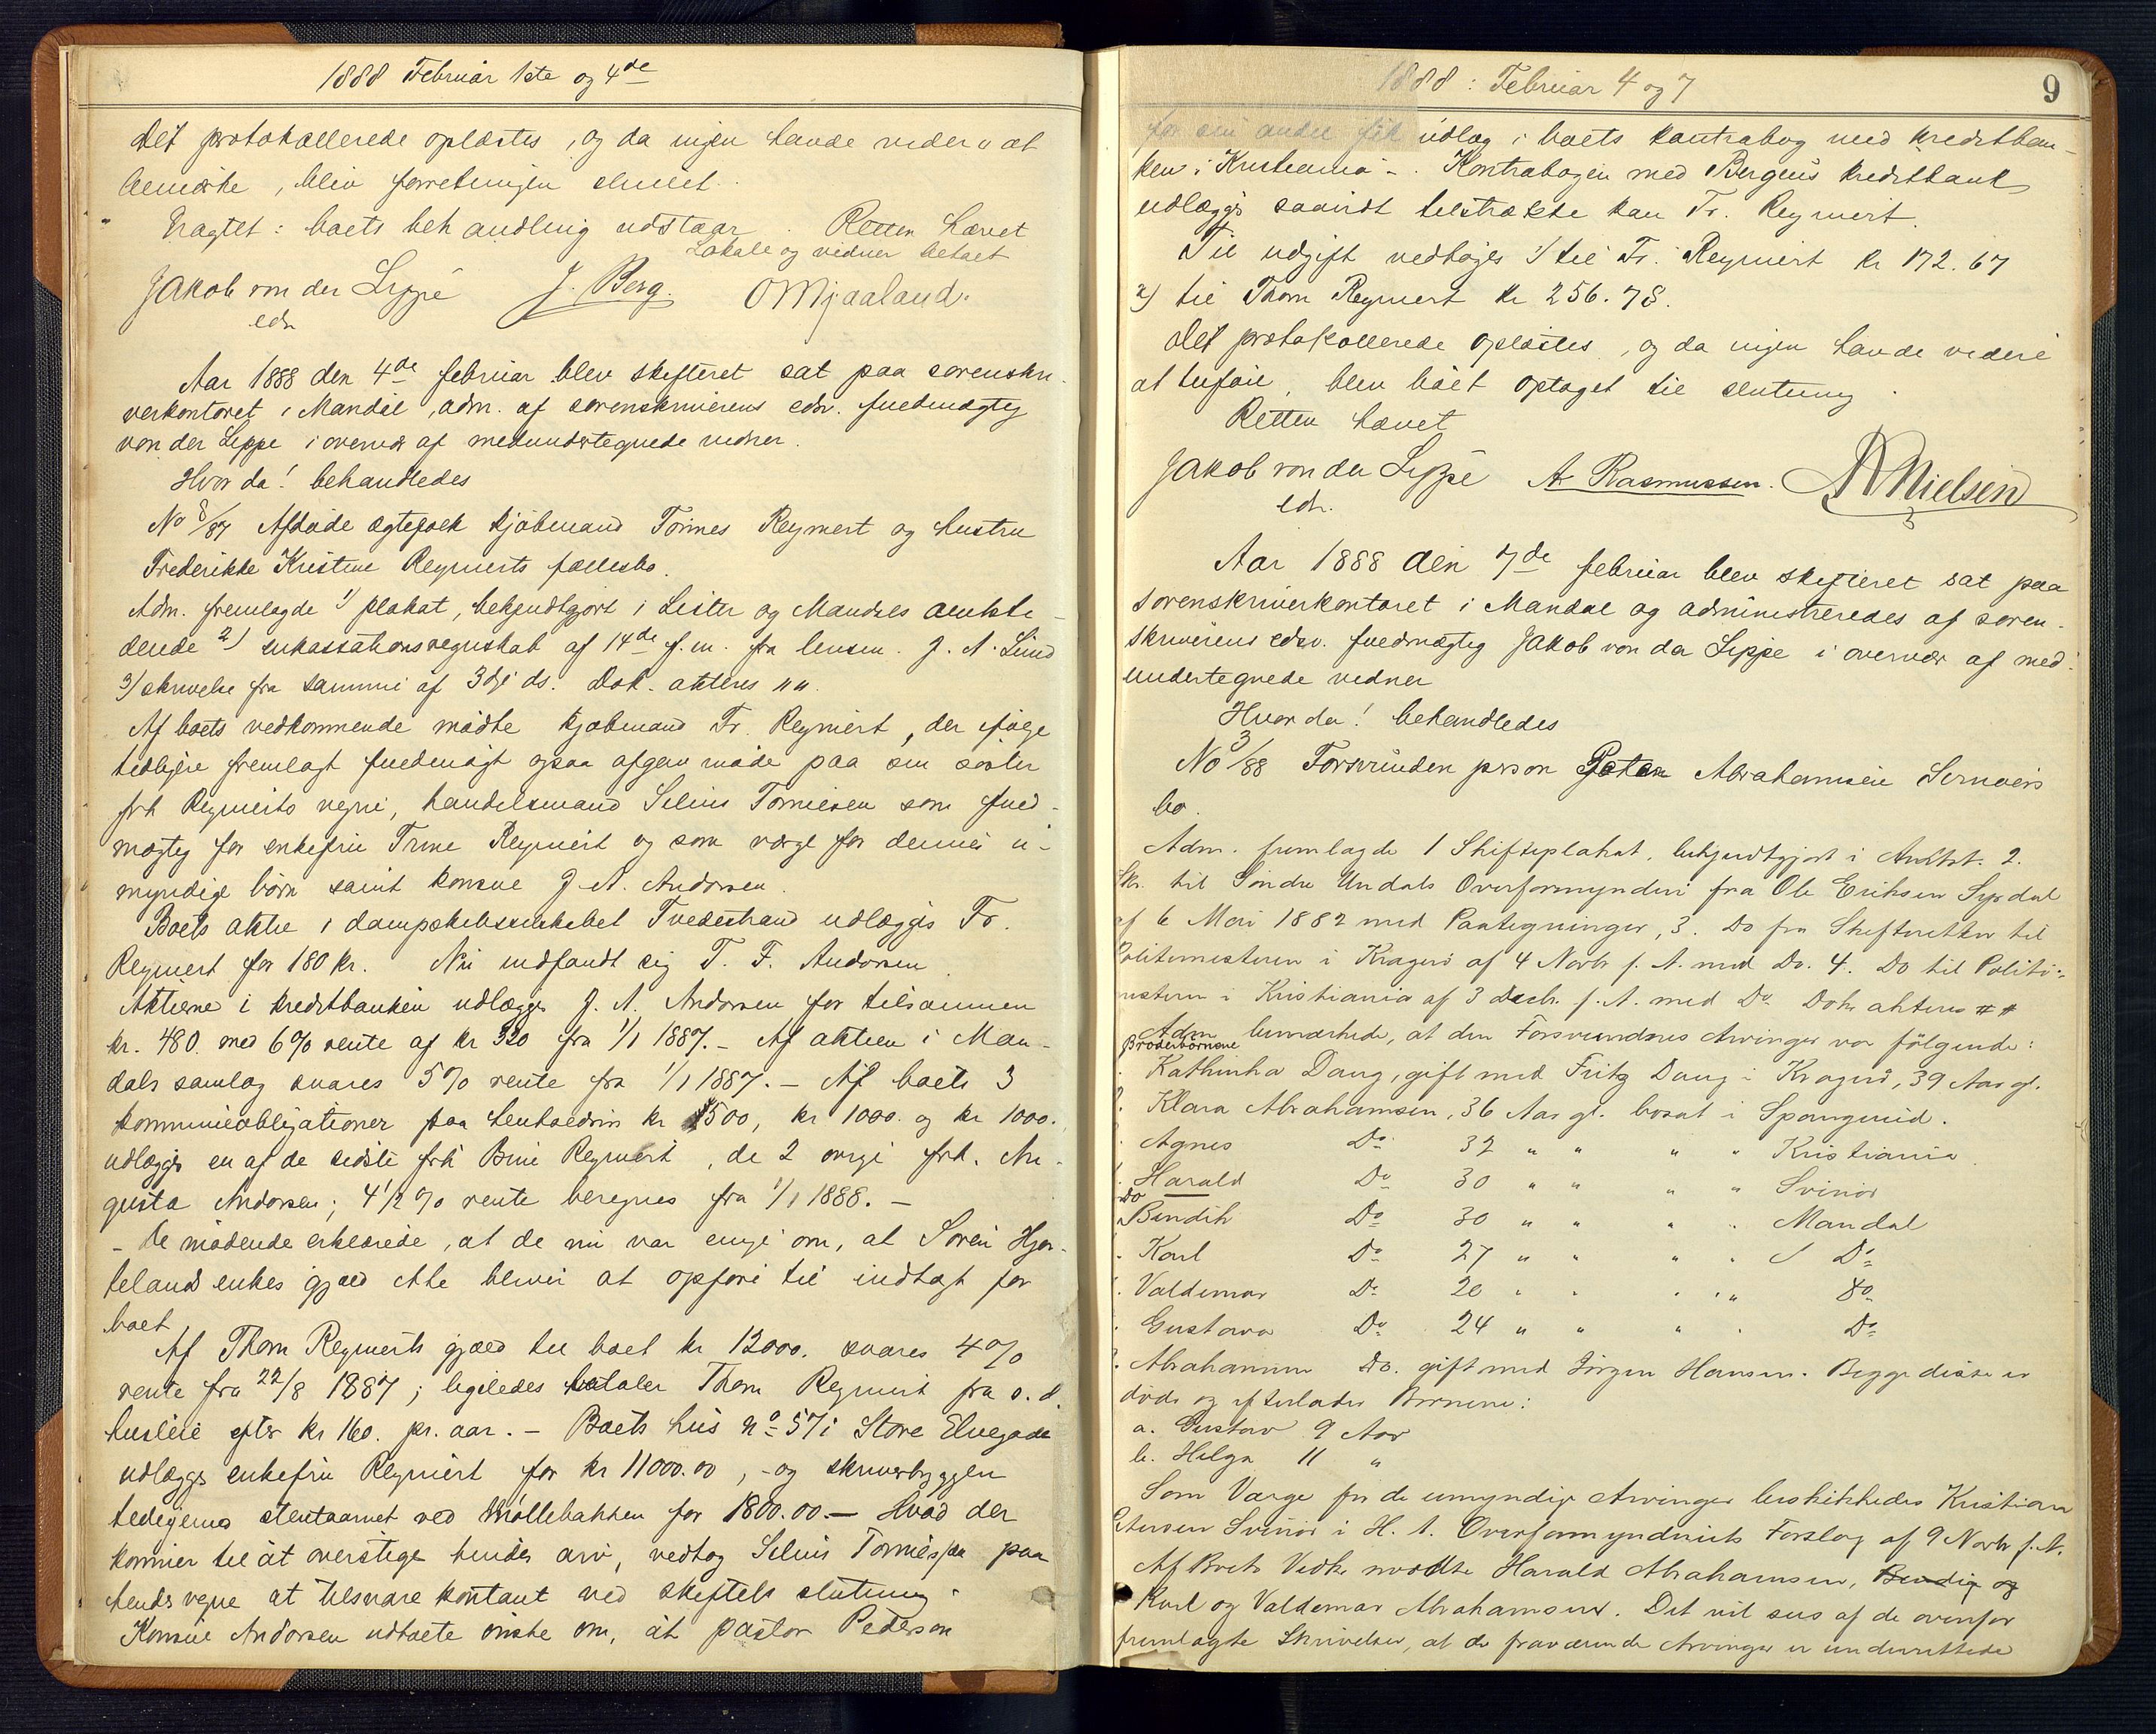 1888 Februar 1ste og 4de
Det protokollerede oplæstes, og da ingen havde videre at
bemærke, blev forretningen sluttet.
Eragtet: boets behandling udstaar. Retten hævet
Lokale og vidner betalt
Jakob von der Lippe J. Berg. O Mjaaland.
edsv.
Aar 1888 den 4de februar blev skifteret sat paa sorenskri-
verkontoret i Mandal, adm. af sorenskriverens edsv. fuldmægtig
von der Lippe i overvær af medundertegnede vidner.
Hvor da! behandledes
No 8/87 Afdøde ægtefolk kjøbmand Tønnes Reymert og hustru
Frederikke Kristine Reymerts fællesbo.
Adm. fremlagde 1) plakat, bekjendtgjort i Lister og Mandals amtsti-
dende 2) inkassationsregnskab af 14de f.m. fra lensm. J. A. Lund
3) skrivelse fra samme af 3dje ds. Dok. akteres " "
Af boets vedkommende mødte kjøbmand Fr. Reymert, der ifølge
tidligere fremlagt fuldmagt ogsaa afgav møde paa sin søster
frk Reymerts vegne, handelsmand Selius Tørresen som fuld-
mægtig for enkefru Trine Reymert og som værge for dennes u-
myndige børn samt konsul J. A. Andorsen.
Boets aktie i dampskibsselskabet Tvedestrand udlægges Fr.
Reymert for 180 kr. Nu indfandt sig T. F. Andorsen
Aktierne i kreditbanken udlægges J. A. Andorsen for tilsammen
kr. 480. med 6% rente af kr 320 fra 1/1 1887. - Af aktien i Man-
dals samlag svares 5% rente fra 1/1 1887. - Af boets 3
kommuneobligationer paa henholdsvis kr 1500, kr 1000. og kr 1000.
udlægges en af de sidste frk Bine Reymert, de 2 øvrige frk. Au-
gusta Andorsen; 4 1/2 % rente beregnes fra 1/1 1888. -
- De mødende erklærede, at de nu var enige om, at Søren Hjor-
telands enkes gjæld ikke bliver at opføre til indtægt for
boet
Af Thom Reymerts gjæld til boet kr 12000. svares 4%
rente fra 22/8 1887; ligeledes betaler Thom Reymert fra s. d.
husleie efter kr 160. pr. aar. - Boets hus No 57 i Store Elvegade
udlægges enkefru Reymert for kr 11000.00, - og skriverbryggen
tilligemed stentaarnet ved Møllebakken for 1800.00 - Hvad der
kommer til at overstige hendes arv, vedtog Selius Tørresen paa
hendes vegne at tilsvare kontant ved skiftets slutning.
Konsul Andorsen udtalte ønske om, at pastor Pederson
1888: Februar 4 og 7
9
for sin andel fik udlæg i boets kontrabog med kreditban-
ken i Kristiania -. Kontrabogen med Bergens kreditbank
udlægges saavidt tilstrække kan Fr. Reymert.
Til udgift vedtoges 1) til Fr. Reymert kr 172.67
2) til Thom Reymert kr 256.78.
Det protokollerede oplæstes, og da ingen havde videre
at tilføie, blev boet optaget til slutning.
Retten hævet
Jakob von der Lippe A. Rasmussen. A Nielsen
edsv.
Aar 1888 den 7de februar blev skifteret sat paa
sorenskriverkontoret i Mandal og administreredes af soren-
skriverens edsv. fuldmægtig Jakob von der Lippe i overvær af med-
undertegnede vidner
Hvor da! behandledes
No 3/88 Forsvunden person Peter Abrahamsen Svinørs
bo.
Adm. fremlagde 1 Skifteplakat, bekjendtgjort i Amtst. 2.
Skr. til Søndre Undals Overformynderi fra Ole Eriksen Syrdal
af 6 Mai 1882 med Paategninger, 3. Do fra Skifteretten til
Politimesteren i Kragerø af 4 Novbr f. A. med Do. 4. Do til Politi-
mesteren i Kristiania af 3 Decbr. f. A. med Do Dokr akteres # #
Adm bemærkede, at den Forsvundnes Arvinger var følgende:
Broderbørnene
Kathinka Dang, gift med Fritz Dang i Kragerø, 39 Aar gl.
Klara Abrahamsen, 36 Aar gl. bosat i Spangereid.
Agnes Do 32 " " " " Kristiania
Harald Do 30 " " " " Svinør
Do
Bendik Do 30 " " " " Mandal
Karl Do 27 " " " " Do
Valdemar Do 20 " " " " Do
Gustava Do 24 " " " " Do
Abrahamine Do. gift med Jørgen Hansen. Begge disse er
døde og efterlader Børnene:
a. Gustav 9 Aar
b. Helga 11 "
Som Værge for de umyndige Arvinger beskikkedes Kristian
Petersen Svinør i H. t. Overformynderiets Forslag af 9 Novbr f. A.
Af Boets Vedk. mødte Harald Abrahamsen, Bendig og
Karl og Valdemar Abrahamsen. Det vil sees af de ovenfor
fremlagte Skrivelser, at de fraværende Arvinger er underrettede